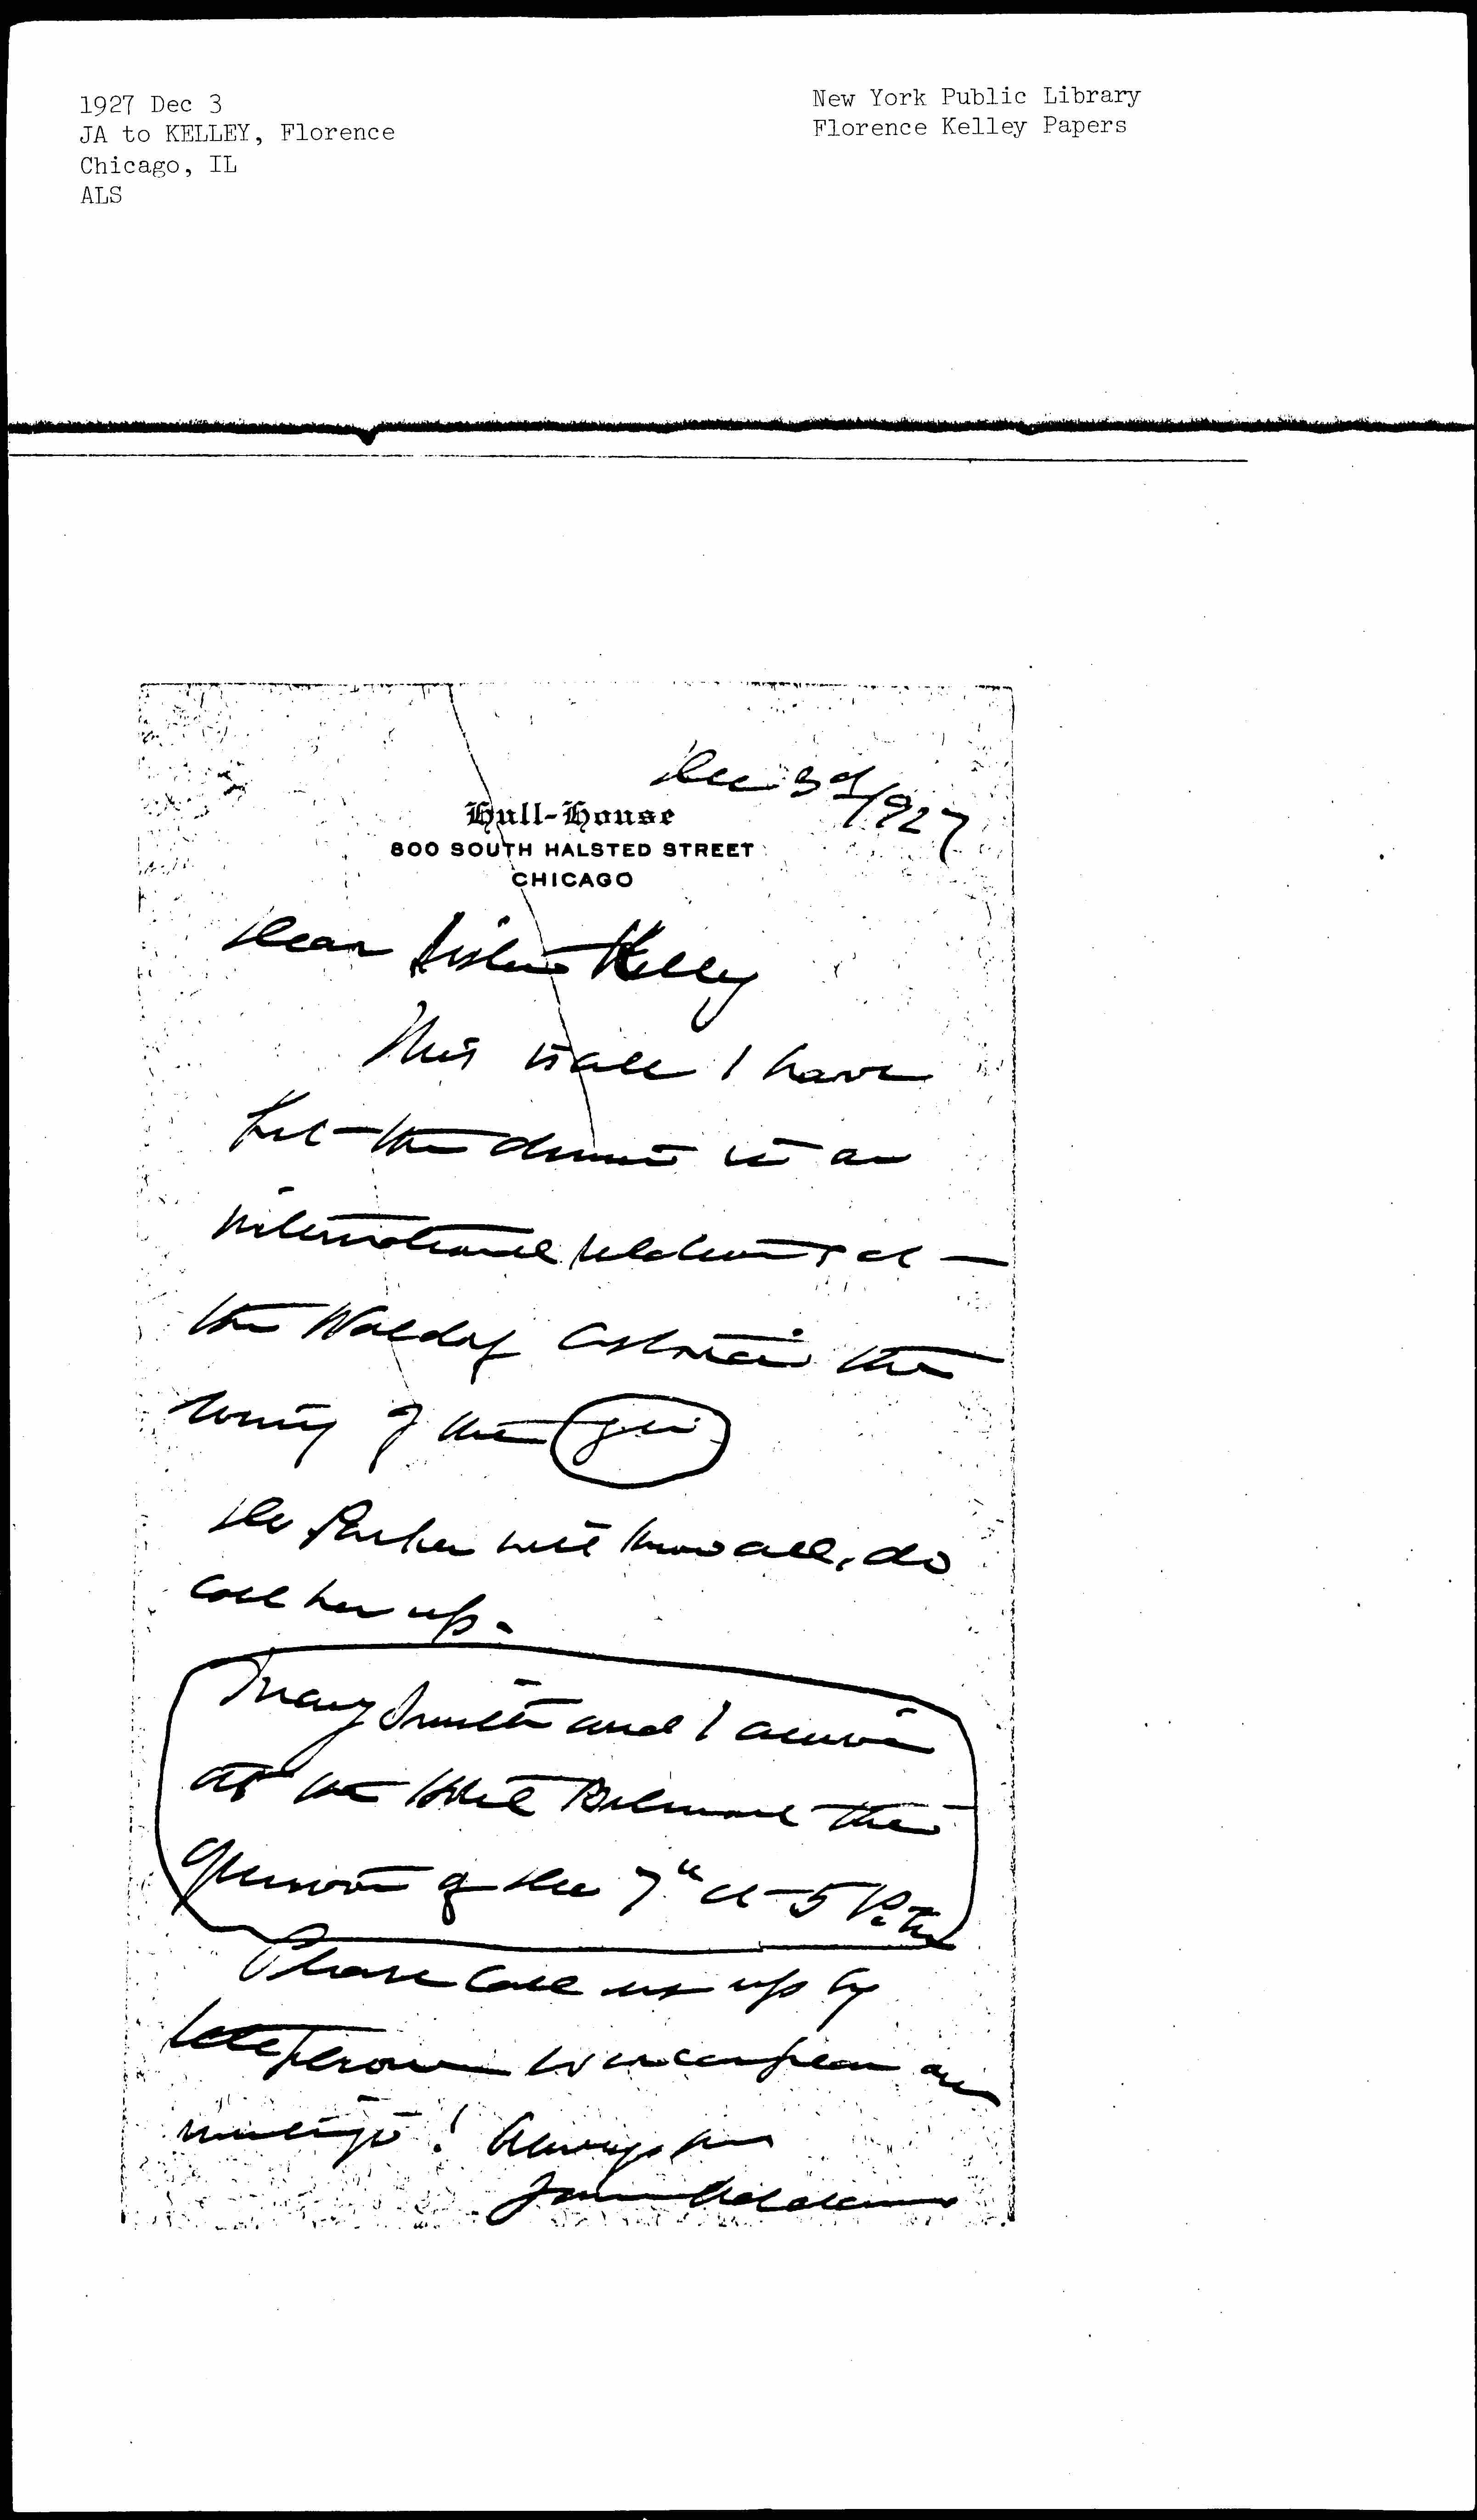 1927 Dec 3
JA to KELLEY, Florence
Chicago, IL
ALS
New York Public Library
Florence Kelley Papers
Dec 3d/1927
Hull-House
800 SOUTH HALSTED STREET
CHICAGO
Dear Sister Kelley
This is all I have
but the dinner is on
international relations at
the Waldorf Astoria the
of the
Dr Parker will know all, do
call her up.
Mary Smith and I arrive
at the Hotel Belmont the
afternoon of Dec 7" at 5 P.M.
Please call us up by
telephone so we can plan our
meetings! Always yrs
Jane Addams